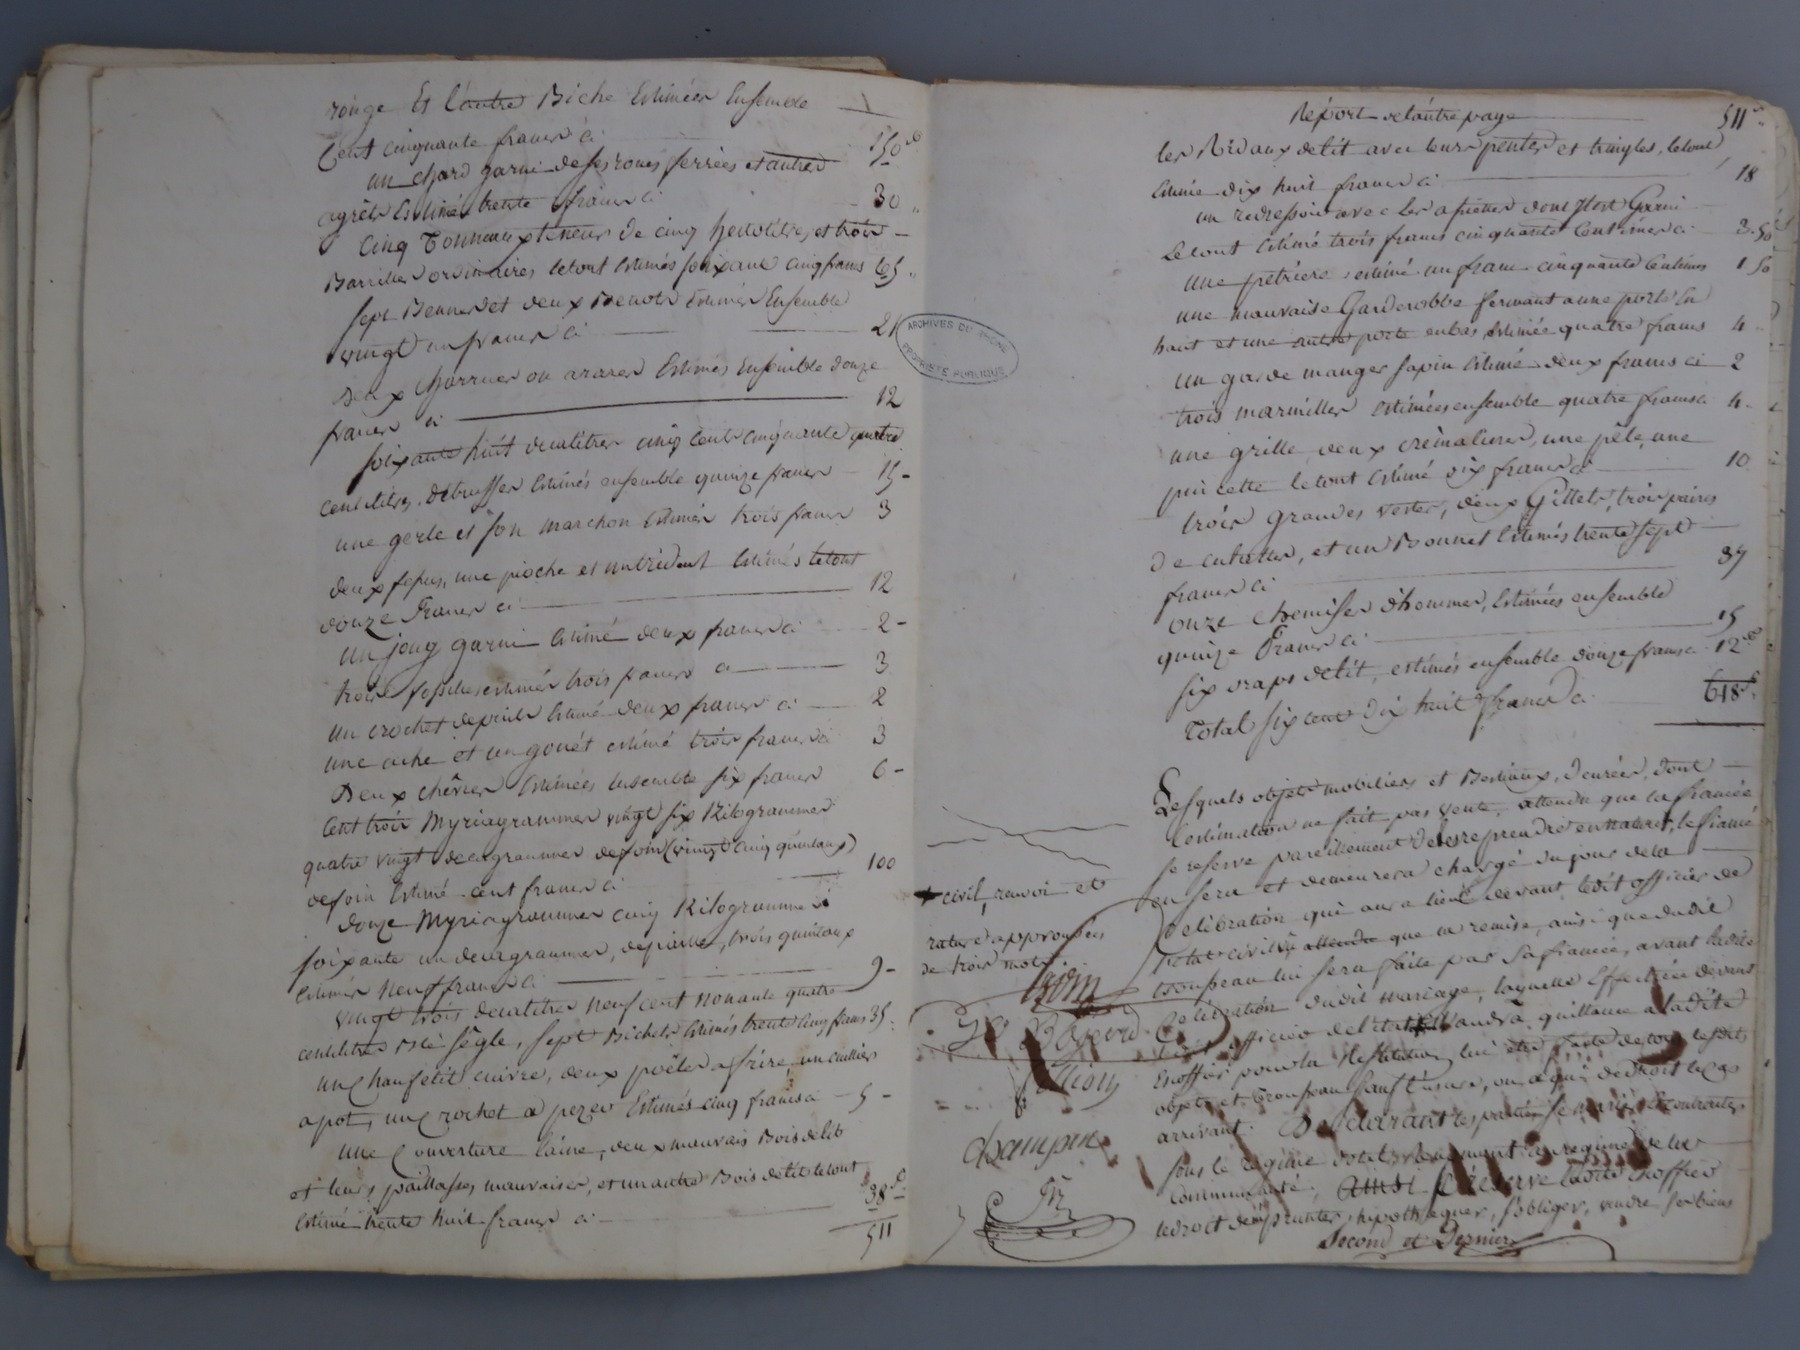 rouge Et l'autre Biche Estimées Ensemble
Cent cinquante francs ci 150
un chard garni de ses roues ferrées et autres
agrêts Estimés trente francs ci 30
Cinq Tonneaux teneur de cinq hectolitres, et trois
Barrilles ordinaires, le tout Estimés soixante cinq francs 65
sept Bennes et deux Benots Estimés Ensemble
vingt un francs ci 21
Deux charrues ou araires Estimés Ensemble douze
francs ci 12
soixante huit decalitres cinq cents cinquante quatre
centilitres, de truffes Estimés ensemble quinze francs 15
une gerle et son manchon Estimés trois francs 3
deux fepus, une pioche et un trident Estimés le tout
douze Francs ci 12
un joug garni Estimé deux francs ci 2
trois estimés trois francs ci 3
un crochet de puits Estimé deux francs ci 2
une ache et un gouét estimé trois francs ci 3
Deux chêvres Estimées Ensemble six francs 6
Cent trois Myriagrammes vingt six Kilogrammes
quatre vingt decagrammes de foin (vingt cinq quintaux)
de foin Estimé cent francs ci 100
Douze Myriagrammes cinq Kilogrammes
soixante un decagrammes, de paille, trois quintaux
Estimés neuf francs ci 9
vingt trois decalitres neuf cent nonante quatre
centilitres Blé sêgle, sept Bichets Estimés trente cinq francs 35
un chaufelit cuivre, deux poêles a frire, un cuillier
a pot, un crochet a pezer Estimés cinq francs ci 5
une Couverture laine, deux mauvais Bois de lit
et leurs paillasses, mauvaises, et un autre Bois de lit le tout
Estimé trente huit francs ci 38
511
ARCHIVES DU RHÔNE
PROPRIÉTÉ PUBLIQUE
Report de l'autre page 511
les Ridaux de lit avec leurs pentes et tringles, le tout
Estimé dix huit francs ci 18
un redressoir avec les assiettes dont il est Garni
Le tout Estimé trois francs cinquante Centimes ci 3 50
une petriere estimé un franc cinquante Centimes 1 50
une mauvaise Garderobbe fermant a une porte En
haut et une autre porte en bas Estimée quatre francs 4
un garde manger sapin Estimé deux francs ci 2
trois marmittes Estimées ensemble quatre francs ci 4
une grille, deux crêmalieres, une pêle, une
pincette le tout Estimé dix francs ci 10
trois grandes vestes, deux Gillets, trois paires
de culottes, et un Bonnet Estimés trente sept
francs ci 37
onze chemises d'hommes, Estimées ensemble
quinze Francs ci 15
six draps de lit, estimés ensemble douze francs ci 12
Total six cent dix huit francs ci 618
Lesquels objets mobiliers et Bestiaux, denrées, dont
l'estimation ne fait pas vente, attendu que la fiancée
se reserve pareillement de les reprendre en nature, le fiancé
en sera et demeurera chargé du jour de la
Célébration qui aura lieu devant ledit officier de
l'Etat civil attendu que la remise, ainsi que dudit
trousseau lui sera faite par sa fiancée, avant ladite
Célébration dudit mariage, laquelle Effectuée devant
officier de l'état vaudra quittance a ladite
Choffier pour la Restitution lui être faite de tous lesdits
objets et trousseau sauf l'usure, ou a qui de droit le cas
arrivant. Déclarant les parties se marier
sous le régime dotal au regime de la
Communauté, ainsi se reserve ladite Choffier
le droit d'emprunter, hipothequer, s'obliger, vendre ses biens
Second et Dernier
civil, renvoi et
rature approuvés
de trois mots
Champin